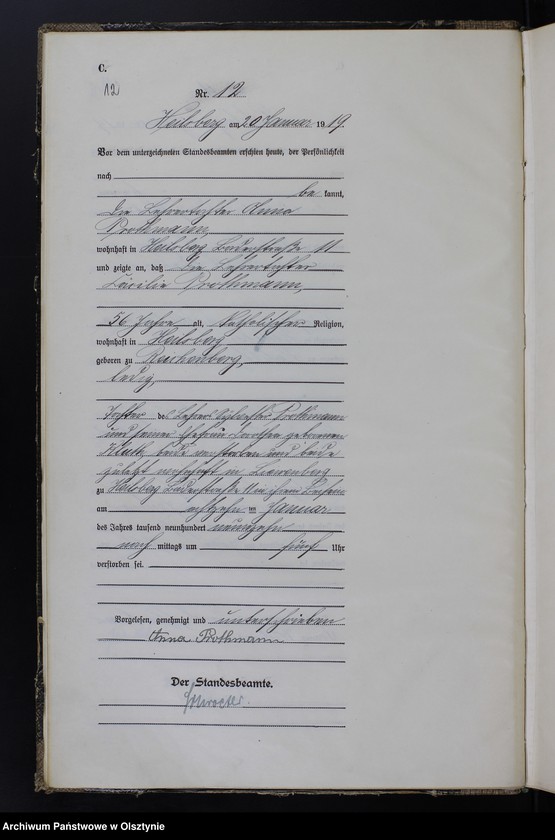 C.
12
Nr. 12
Heilsberg am 20 Januar 1919.
Vor dem unterzeichneten Standesbeamten erschien heute, der Persönlichkeit
nach
be kannt,
die Lehrertochter Anna
Prothmann,
wohnhaft in Heilsberg Baderstraße 11
und zeigte an, daß die Lehrertochter
Cäcilie Prothmann,
56 Jahre alt, katholischer Religion,
wohnhaft in Heilsberg
geboren zu Reichenberg,
ledig,
Tochter des Lehrer Sylvester Prothmann
und seiner Ehefrau Dorothea geborenen
beide verstorben und beide
zuletzt wohnhaft in
zu Heilsberg Baderstraße 11 in ihrem Beisein
am achtzehn ten Januar
des Jahres tausend neunhundert neunzehn
nach mittags um fünf Uhr
verstorben sei.
Vorgelesen, genehmigt und unterschrieben
Anna Prothmann
Der Standesbeamte.
Archiwum Państwowe w Olsztynie